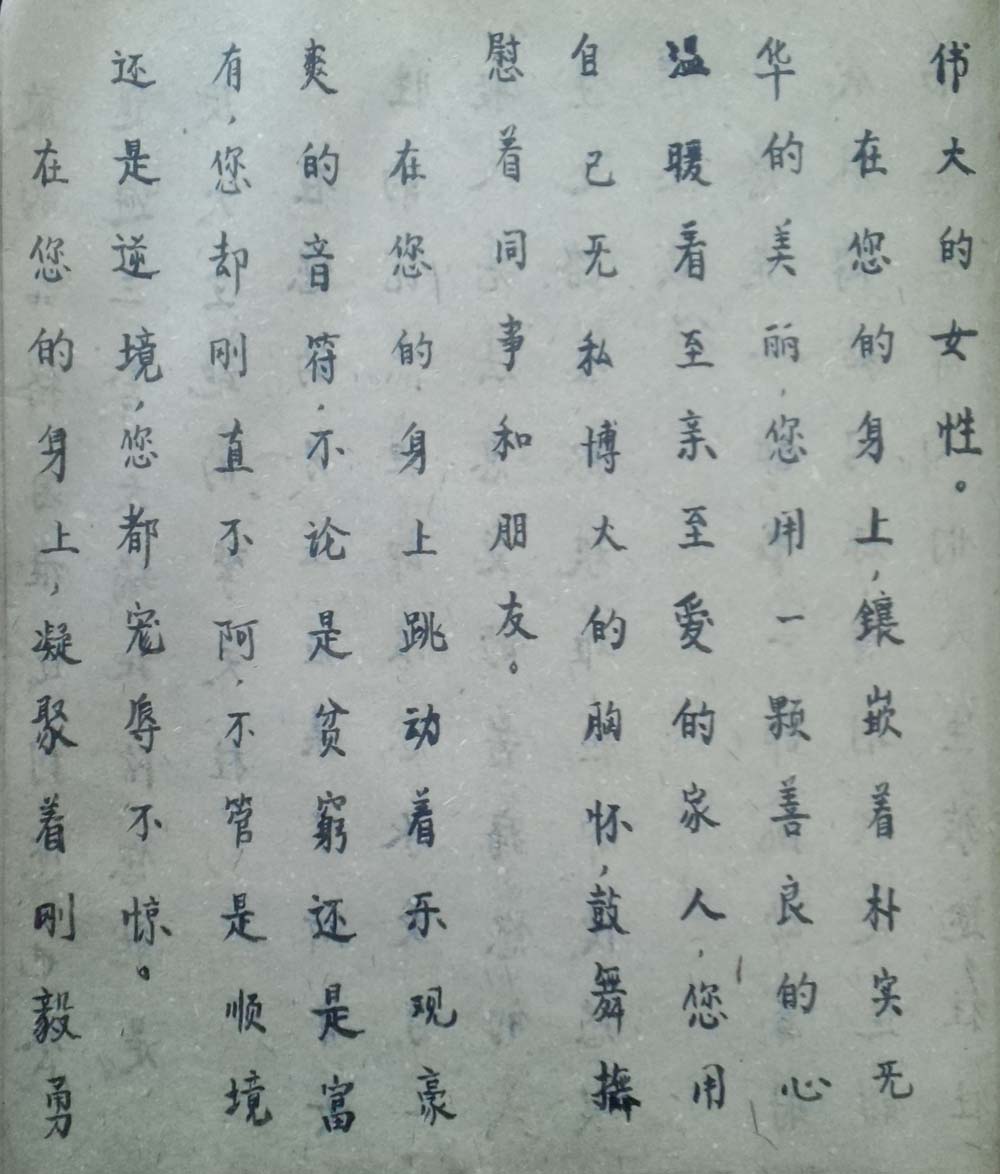 伟大的女性。
在您的身上,镶嵌着朴实无
华的美丽,您用一颗善良的心
温暖着至亲至爱的家人,您用
自己无私博大的胸怀,鼓舞撫
慰着同事和朋友。
在您的身上跳动着乐观豪
爽的音符,不论是贫窮还是富
有,您却刚直不阿,不管是顺境
还是逆境,您都宠辱不惊。
在您的身上,凝聚着刚毅勇